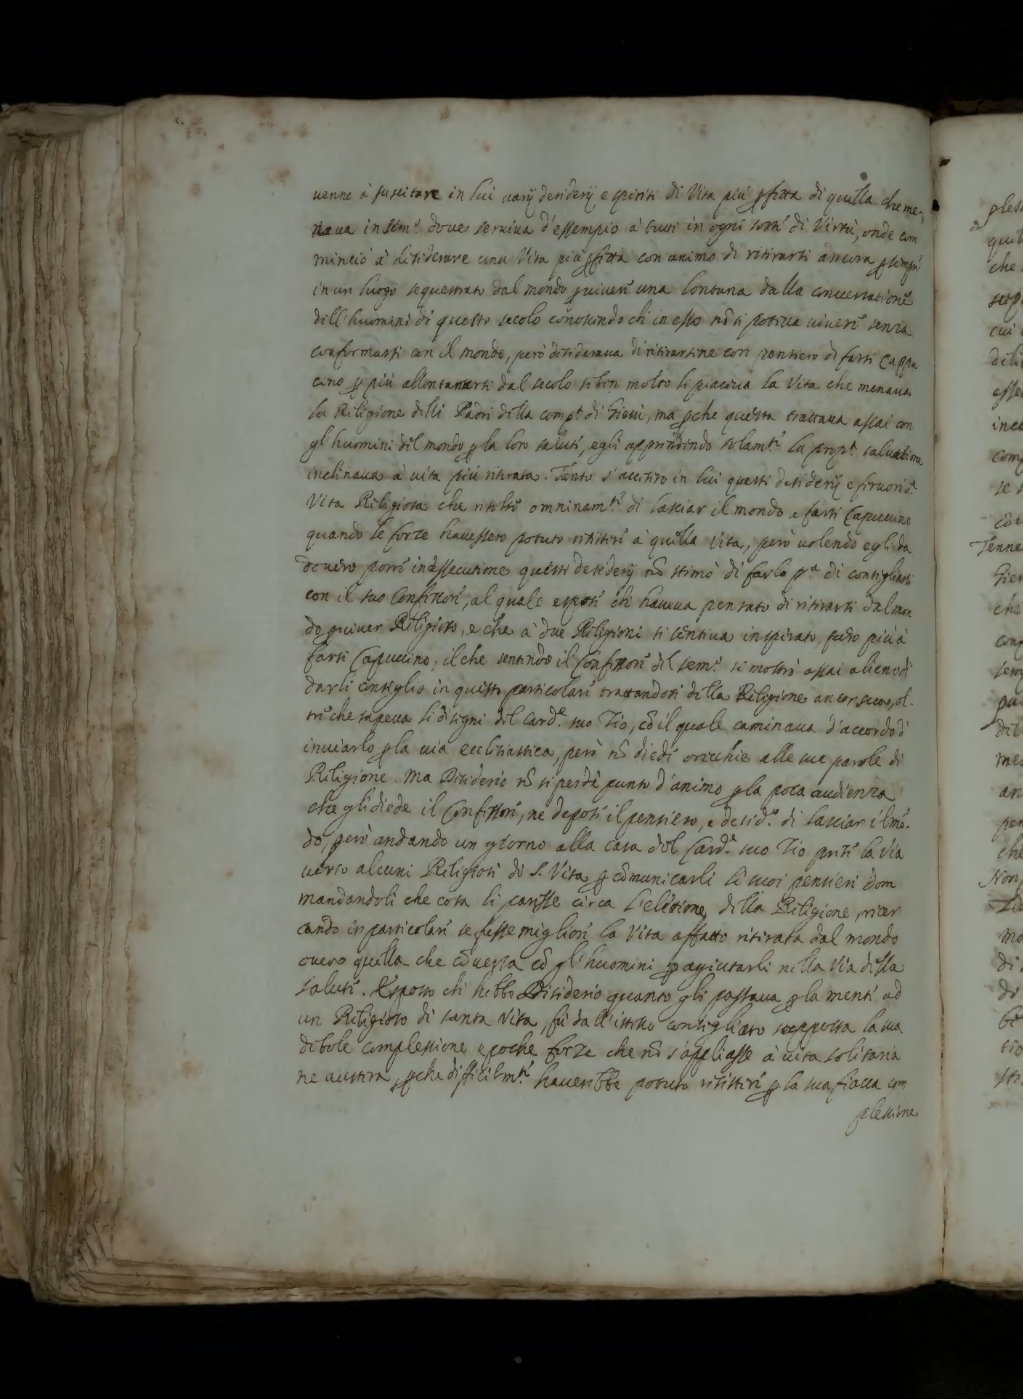 uenne à suscitare in lui uarij desiderij e spiriti di Vita più ꝑfetta di quella che me-
naua in sem.º doue seruiua d'essempio à tutti in ogni sorte di Virtù, onde com
minciò à desiderare una Vita più ꝑfetta con animo di ritirarsi ancora ꝑ sempre
in un luogo sequestrato dal mondo ꝑ uiuere una lontana dalla conuersatione
dell'huomini di questo secolo conoscendo che in esso nõ si poteua uiuere senza
conformarsi con il mondo, però desideraua di ritirarsene con pensiero di farsi Cappu
cino ꝑ più allontanarsi dal secolo se ben molto li piaceua la Vita che menaua
la Religione delli Padri della comp.ª di Giesù, ma ꝑche questa trattaua assai con
gl'huomini del mondo ꝑ la loro salute, egli apprendendo solam.te la prop.ª saluatione
inclinaua à uita più ritirata. Tanto s'accesero in lui questi desiderij e feruori di
Vita Religiosa che risolse omninam.te di lasciar il mondo e farsi Capuccino
quando le forze hauessero potuto resistere à quella Vita, però uolendo egli da
douero porre in essecutione questi desiderij nõ stimò di farlo p.ª di consigliarsi
con il suo Confessore, al quale espose che haueua pensato di ritirarsi dal mon
do ꝑ uiuer Religioso, e che à due Religioni si sentiua inspirato, però più à
farsi Capuccino, il che sentendo il Confessore del sem.º si mostrò assai alieno di
darli consiglio in questo particolare trattandosi della Religione ancor sua, ol-
tre che sapeua li disegni del Card.e suo Tio, cõ il quale caminaua d'accordo d'
inuiarlo ꝑ la uia ecclesiastica, però nõ diede orecchie alle sue parole di
Religione. Ma Desiderio nõ si perdè punto d'animo ꝑ la poca audienza
che gli diede il Confessore, ne depose il pensiero, e desid.º di lasciar il mõ-
do, però andando un giorno alla casa del Card.e suo Tio prese la uia
uerso alcuni Religiosi di S. Vita ꝑ cõmunicarli li suoi pensieri dom
mandandoli che cosa li paresse circa l'elettione della Religione, ricer
cando in particolare se fusse migliore la Vita affatto ritirata dal mondo
ouero quella che cõuersa cõ gl'huomini ꝑ agiutarli nella Via della
salute. Esposto che hebbe Desiderio quanto gli passaua ꝑ la mente ad
un Religioso di santa Vita, fù dall'istesso consigliato supposta la sua
debole complessione e poche forze che nõ s'appliasse à uita solitaria
ne austera, ꝑche difficilm.te hauerebbe potuto resistere ꝑ la sua fiacca com
plessione